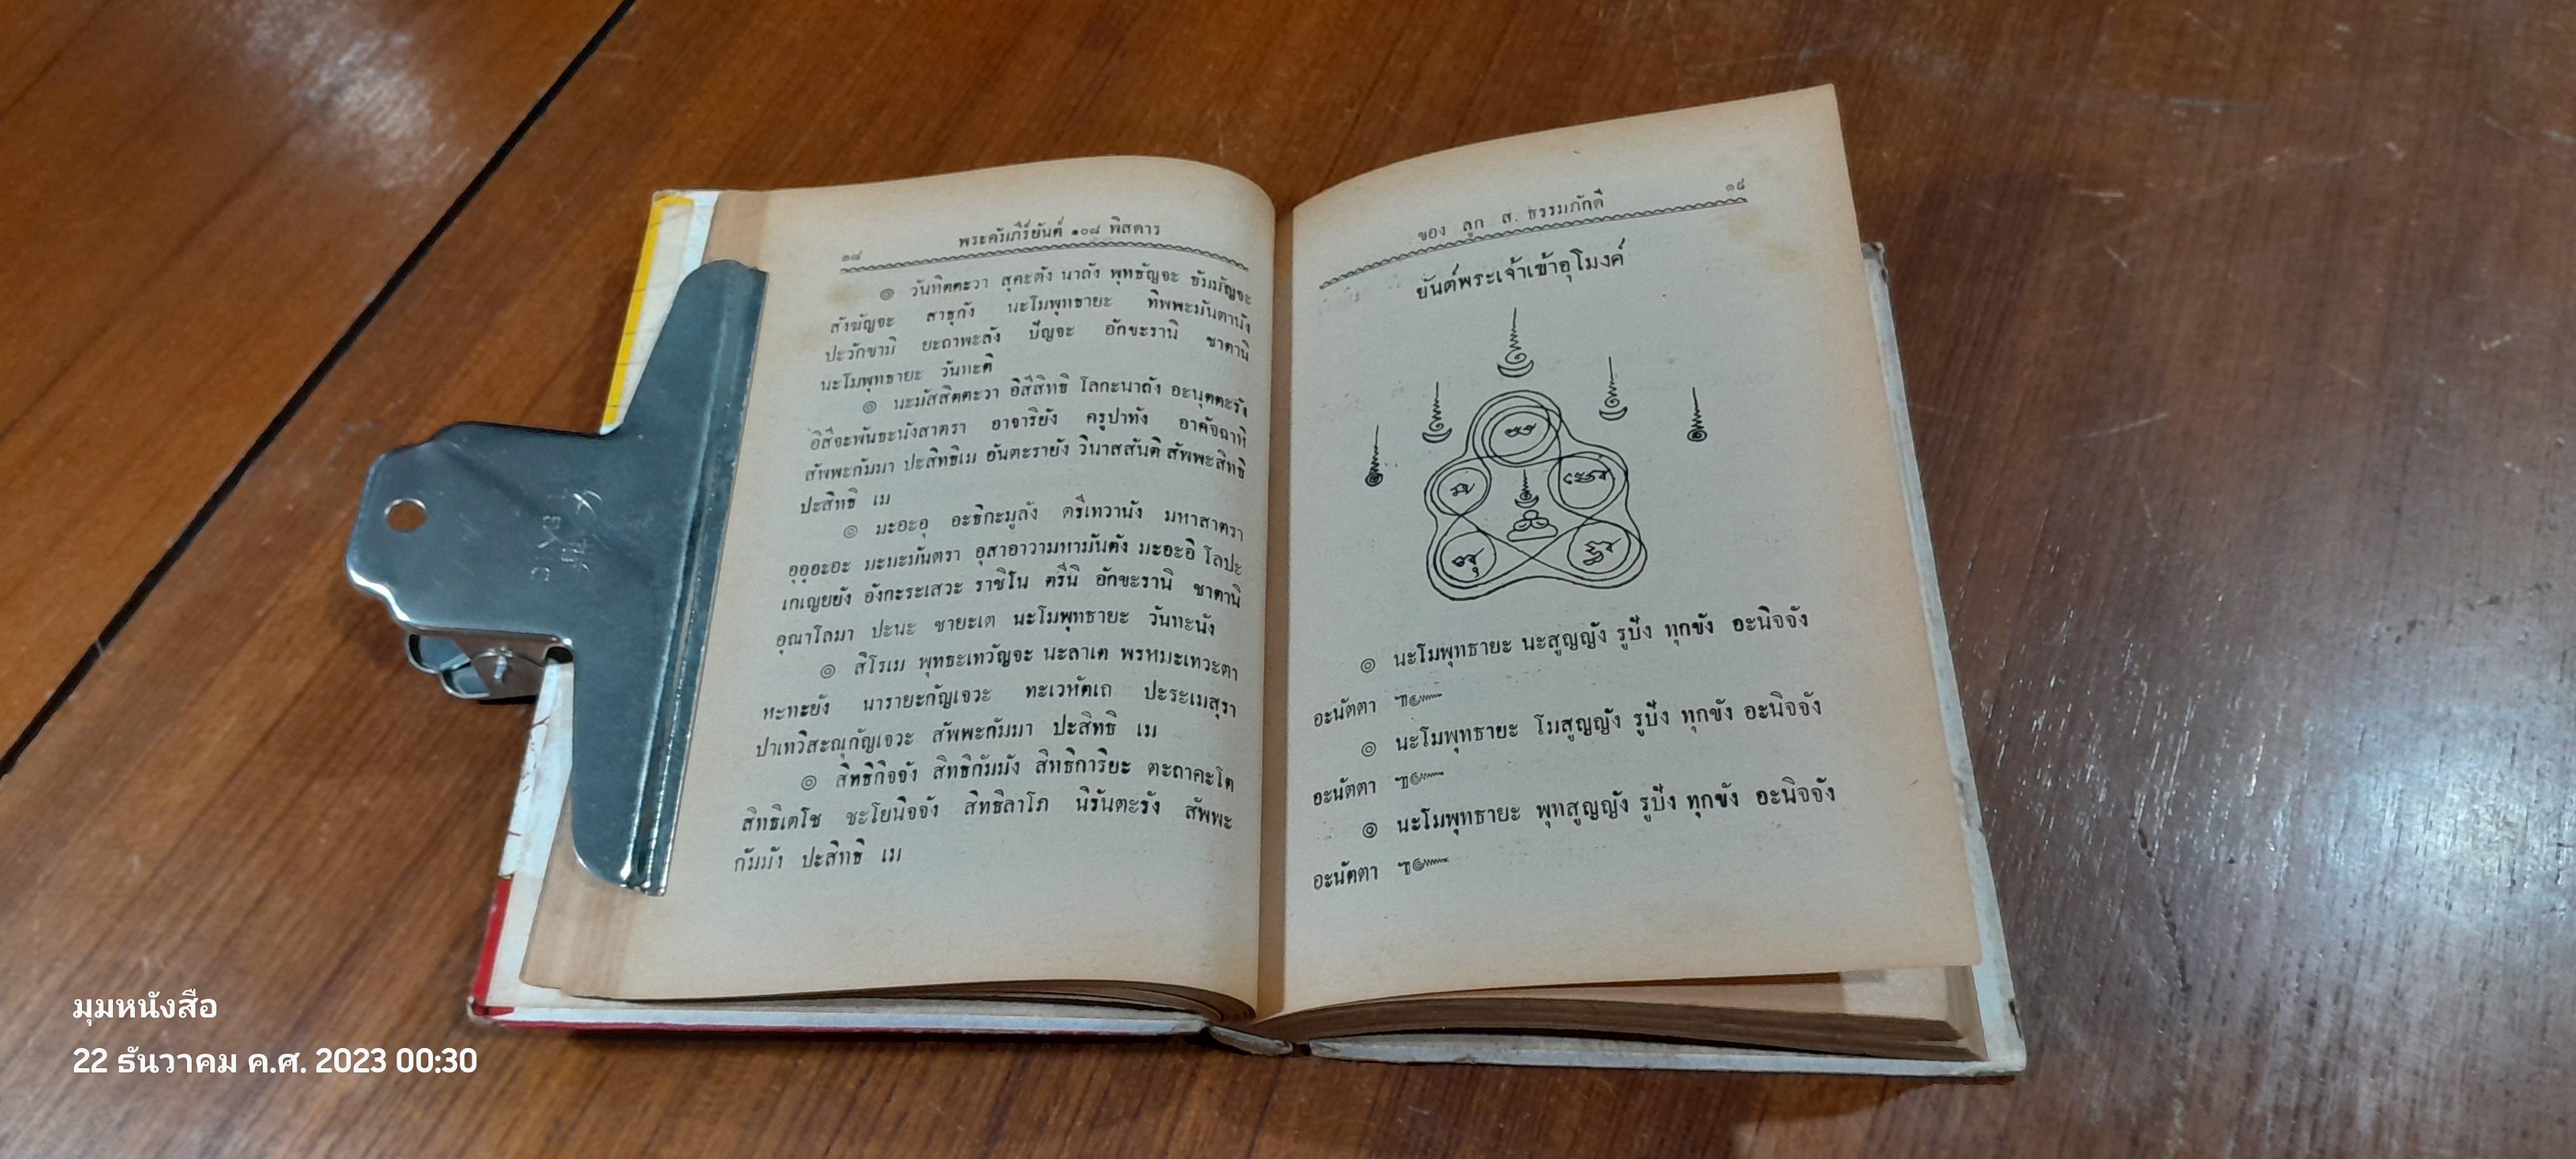 ๑๘
พระคัมภีร์ยันต์ ๑๐๘ พิสดาร
๏ วันทิตตะวา สุคะตัง นาถัง พุทธัญจะ ธัมมัญจะ
สังฆัญจะ สาธุกัง นะโมพุทธายะ ทิพพะมันตานัง
ปะวักขามิ ยะถาพะลัง ปัญจะ อักขะรานิ ชาตานิ
นะโมพุทธายะ วันทะติ
๏ นะมัสสิตตะวา อิสีสิทธิ โลกะนาถัง อะนุตตะรัง
อิสีจะพันธะนังสาตรา อาจาริยัง ครูปาทัง
สัพพะกัมมา ปะสิทธิเม อันตะรายัง วินาสสันติ สัพพะสิทธิ
ปะสิทธิ เม
๏ มะอะอุ อะธิกะมูลัง ตรีเทวานัง มหาสาตรา
อุอุอะอะ มะมะมันตรา อุสาอาวามหามันตัง มะอะอิ โลปะ
เกเญยยัง อังกะระเสวะ ราชิโน ตรีนิ อักขะรานิ ชาตานิ
อุณาโลมา ปะนะ ชายะเต นะโมพุทธายะ วันทะนัง
๏ สิโรเม พุทธะเทวัญจะ นะลาเต พรหมะเทวะตา
หะทะยัง นารายะกัญเจวะ ทะเวหัตเถ ปะระเมสุรา
ปาเทวิสะณุกัญเจวะ สัพพะกัมมา ปะสิทธิ เม
๏ สิทธิกิจจัง สิทธิกัมมัง สิทธิการิยะ ตะถาคะโต
สิทธิเตโช ชะโยนิจจัง สิทธิลาโภ นิรันตะรัง สัพพะ
กัมมัง ปะสิทธิ เม
ของ ลูก ส. ธรรมภักดี
๑๙
ยันต์พระเจ้าเข้าอุโมงค์
๏ นะโมพุทธายะ นะสูญญัง รูปัง ทุกขัง อะนิจจัง
อะนัตตา ฯ๛
๏ นะโมพุทธายะ โมสูญญัง รูปัง ทุกขัง อะนิจจัง
อะนัตตา ฯ๛
๏ นะโมพุทธายะ พุทสูญญัง รูปัง ทุกขัง อะนิจจัง
อะนัตตา ฯ๛
มุมหนังสือ
22 ธันวาคม ค.ศ. 2023 00:30